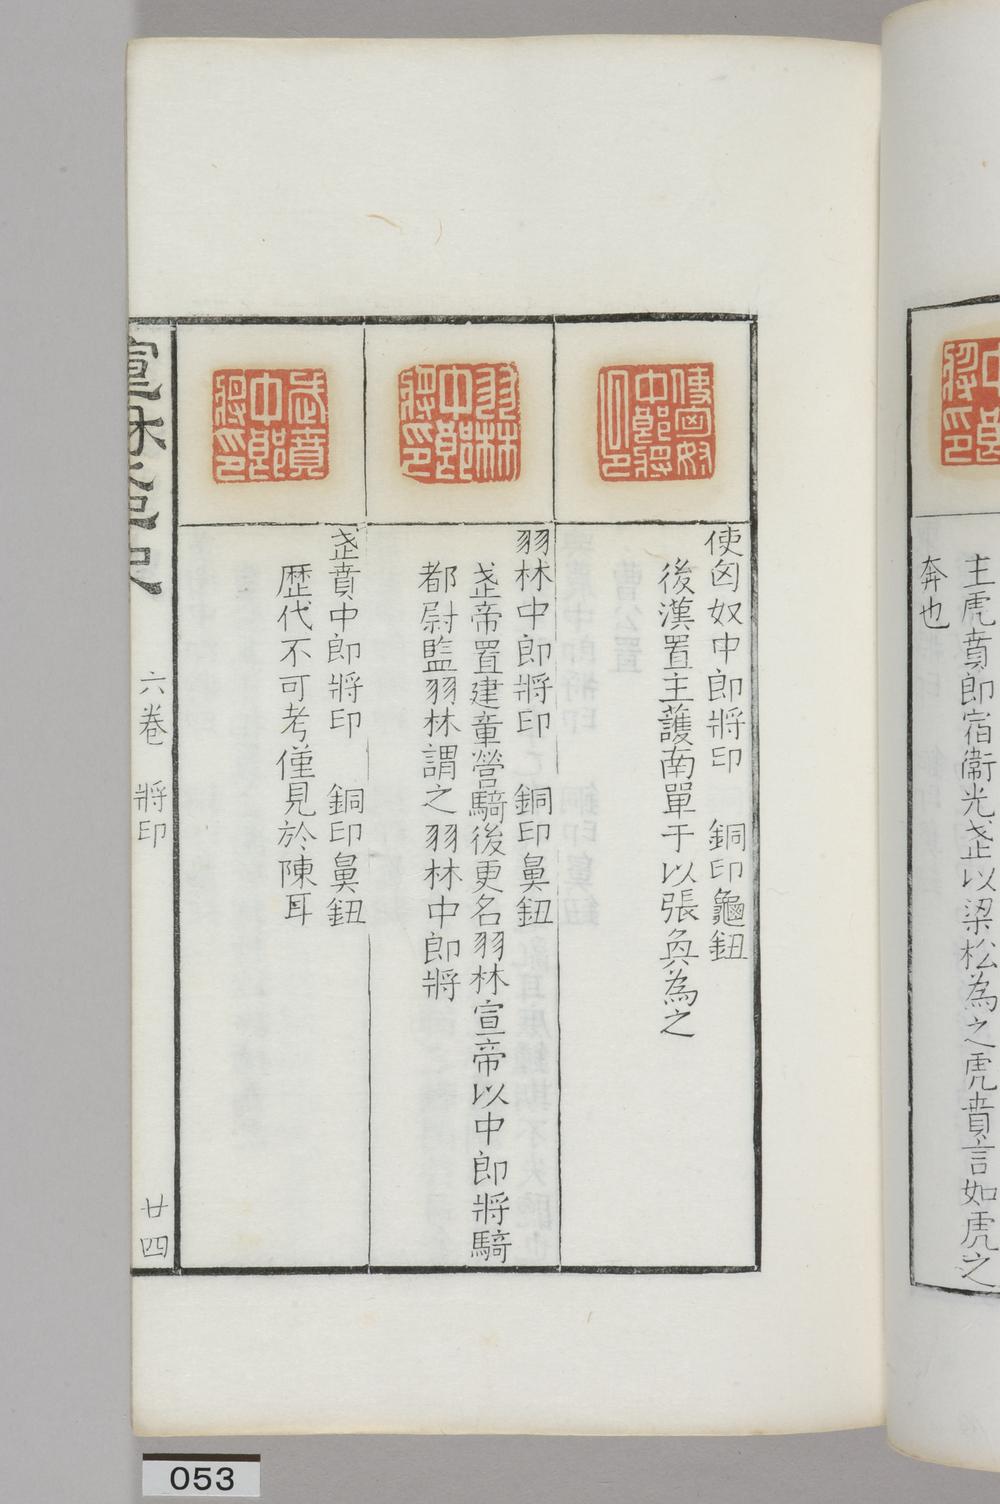 中
將印
主虎賁郎宿衞光武以梁松為之虎賁言如虎之
奔也
使匈奴
中郎將
印
使匈奴中郎將印　銅印龜鈕
後漢置主護南單于以張奐為之
羽林
中郎
將印
羽林中郎將印　銅印鼻鈕
武帝置建章營騎後更名羽林宣帝以中郎將騎
都尉監羽林謂之羽林中郎將
武賁
中郎
將印
武賁中郎將印　銅印鼻鈕
歷代不可考僅見於陳耳
宣和
史
六卷　將印
廿四
053